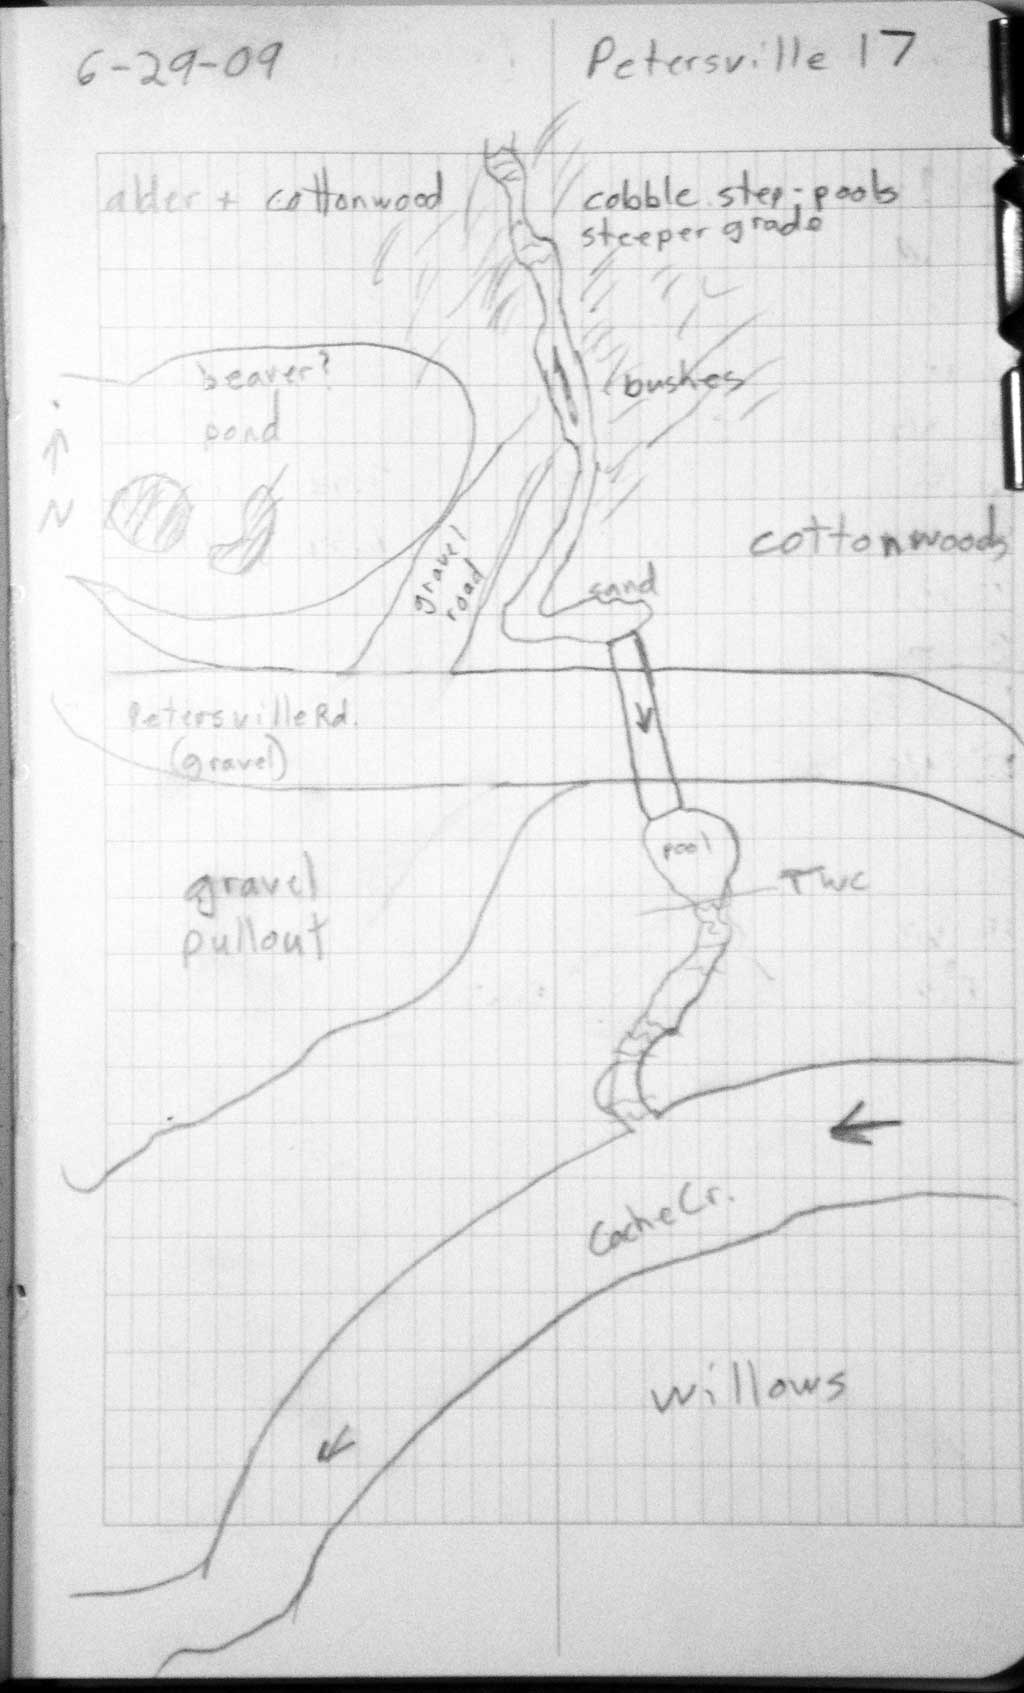 6-29-09
Petersville 17
alder + cottonwood
cobble step-pools
steeper grade
beaver?
pond
bushes
N
cottonwoods
gravel
road
sand
Petersville Rd.
(gravel)
pool
gravel
pullout
TWC
Cache Cr.
willows